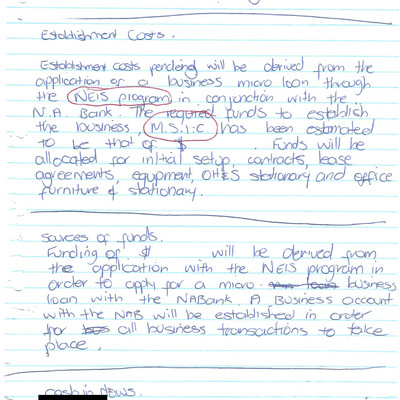 Establishment Costs.
Establishment costs pending will be derived from the
application of a business micro loan through
the NEIS program in conjunction with the
N.A. Bank. The required funds to establish
the business, M.S.I.C. has been estimated
to be that of $ . Funds will be
allocated for initial setup, contracts, lease
agreements, equipment, OH&S stationary and office
furniture & stationary.
sources of funds.
Funding of $ will be derived from
the application with the NEIS program in
order to apply for a micro business
loan with the NABank. A Business account
with the NAB will be established in order
for all business transactions to take
place.
cash in flows.